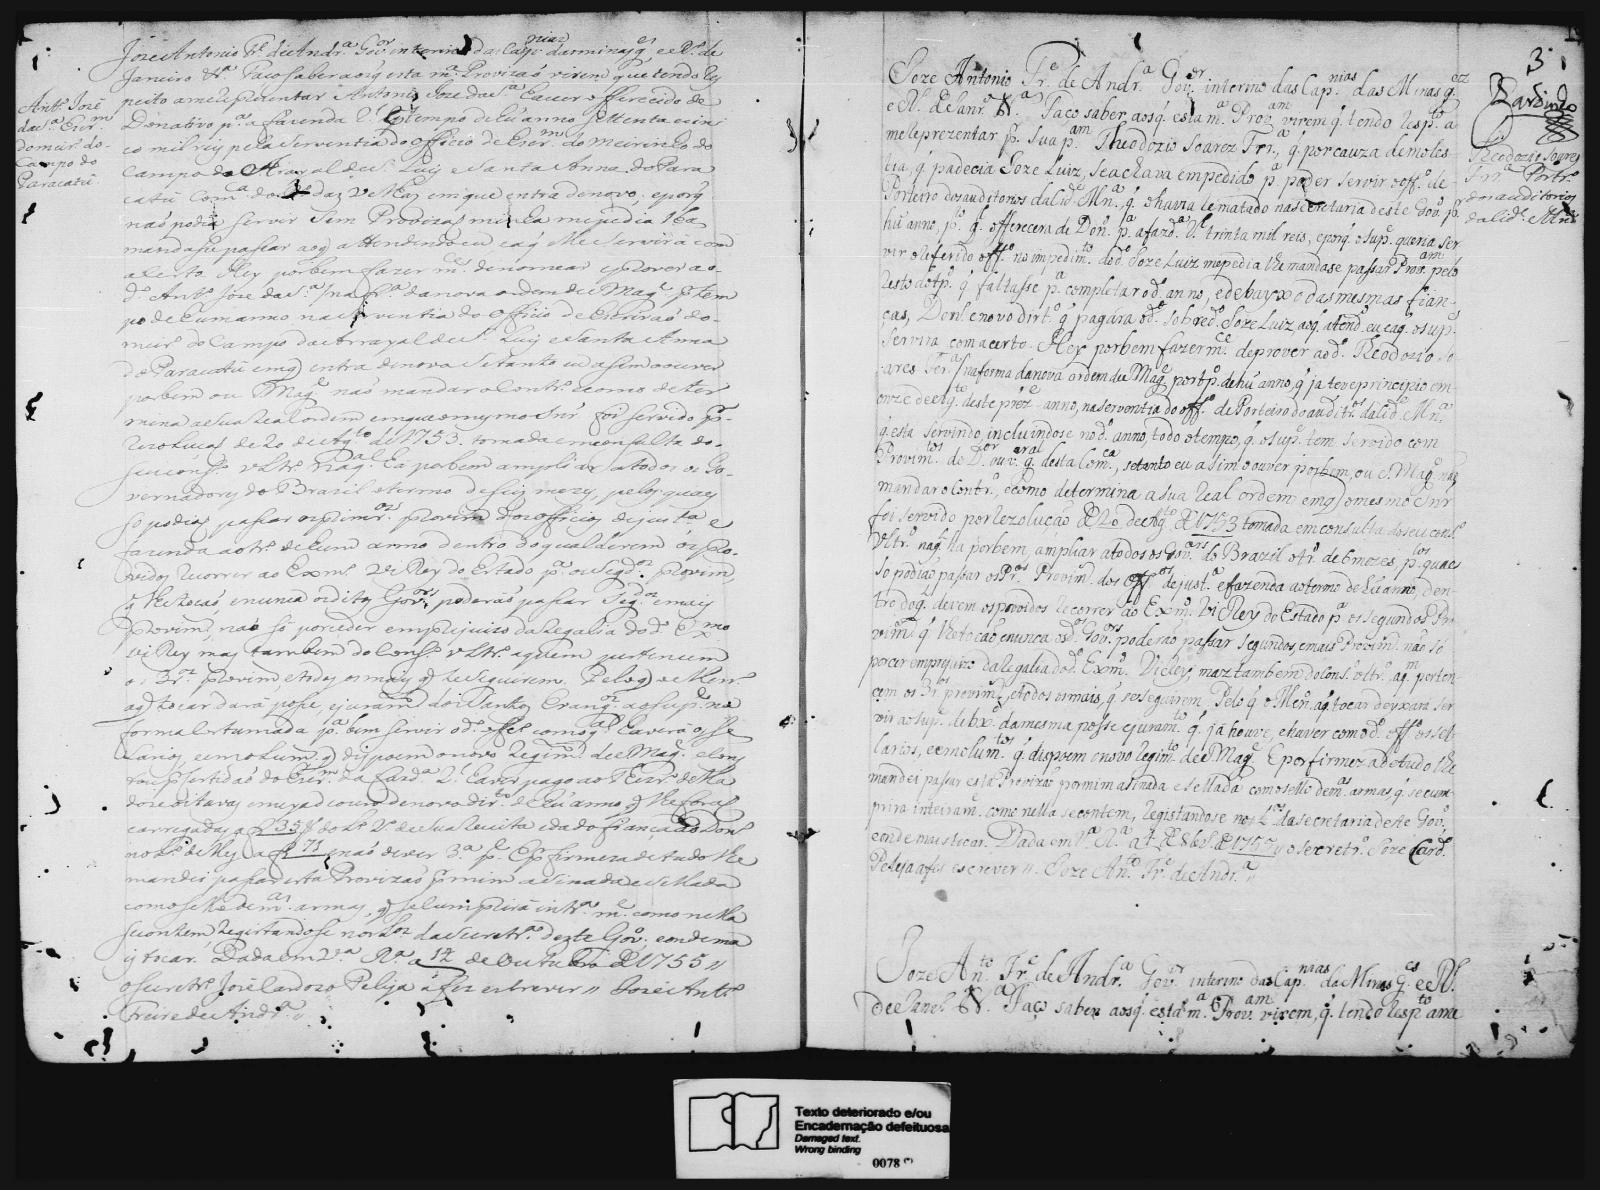 Joze Antonio Fr.e de Andr.a Gov.or interino das Cap.nias das minas g.es e R.o de
Janeiro &.a Faço saber aos q esta m.a Provizaõ virem que tendo res
peito a me reprezentar Antonio Joze da S.a haver offerecido de
Donativo p.a a fazenda R.l por tempo de hu anno settenta e sin
co mil reis pela serventia do officio de Escr.m do Meirinho do
Campo do Arrayal de S. Luis e Santa Anna do Para
catû Com.ca do R.o das V.as em que entra de novo, e porq
naõ podia servir sem Provizaõ minha me pedia lha
mandasse passar ao q attendendo eu e a q me servirâ com
acerto. Hey por bem fazer m.ce de nomear e prover ao
d.o Ant.o Joze da S.a na fr.a da nova ordem de S Mag.e p.r tem
po de hum anno na serventia do officio de Escrivaõ do
meir.o do Campo do Arrayal de S. Luis e Santa Anna
do Paracatû em q entra de novo se tanto eu asim o ouver
por bem ou S Mag.e naõ mandar o contr.o como deter
mina a sua Real ordem em que o mesmo Snr foi servido p.r
Rezoluçaõ de 20 de Ag.to de 1753. tomada em consulta do
seu cons.o Ultr. haja por bem ampliar a todos os Go
vernadores do Brazil o termo de seis mezes, pelos quaes
só podiaõ passar os prim.os provim.tos dos officios de justa e
fazenda ao tr.o de hum anno dentro do qual devem os Pro
vidos recorrer ao Exm.o Vi Rey do Estado p.a os seg.dos provim.
q lhe tocaõ, e nunca os ditos Gov.res poderaõ passar Seg.dos e mais
provim., naõ só por ceder em prejuizo da regalia do d.o Ex.mo
Vi Rey mas tambem do Cons.o Ultr. a quem pertencem
os 3.os provim. e todos os mais q se seguirem. Pelo q o Men.
a q tocar darâ posse, e juram.to dos Santos Evang.os ao sup.e na
forma costumada p.a bem servir o d.o off.o com o q.al haverâ o s se
larios, e emolum. q dispoem o novo Regim. de S Mag.e e cons
tou p certidaõ do Escr.m da Fazd.a R.l haver pago ao Thezr. della
doze oitavas e meya de ouro de novo dir.to de hu anno q lhe foraõ
carregadas a f 35 v do L.o 2.o de sua receita e dado fiança ao Don.
no L.o della a f 71 e naõ dever 3.a p.e E p firmeza de tudo lhe
mandei passar esta Provizaõ p mim asinada e sellada
com o sello de m.as armas, q se cumprirâ intr.a m.e como nella
se contem registandose nos L.os da Secretr.a deste Gov., e onde ma
is tocar. Dada em V.a R.a a 12 de Outubro de 1755 //
o Secretr.o Joze Cardozo Peleja a fez escrever // Joze Ant.o
Freire de Andr.a //
Ant.o José
da S.a Escr.m
do meir.o do
Campo do
Paracatû
3
Theodozio Soares
Frr.a Portr.o
dos auditorios
da Cid.e Mna
Joze Antonio Fr.e de Andr.a Gov.or interino das Cap.nias das Minas g.ez
e R.o de Janr.o &.a Faço saber aos q. esta m.a Prov.am virem q. tendo resp.to a
me reprezentar p. sua p.am Theodozio Soarez Frr.a, q. por cauza de moles
tia, q. padecia Joze Luiz, se achava empedido p.a poder servir o off.o de
Porteiro dos auditorios da Cid.e Mn.a, q. o havia rematado na secretaria deste Gov.o p.r
hũ anno, p.o q. offerecera de Don.o p.a a fazd.a R.l trinta mil reis, e porq. o sup.e queria ser
vir o referido off.o no impedim.to do d.o Joze Luiz me pedia lhe mandase passar Prov.am pelo
resto do tp.o q. faltasse p.a completar o d.o anno, e debayxo das mesmas fian
ças, Don.o e novo dirt.o q. pagara o d.o sobred.o Joze Luiz ao q. atend.o eu e a q. o sup.e
servirá com acerto. Hey por bem fazer m.ce de prover ao d.o Theodozio So
ares Frr.a na forma da nova ordem de S Mag.e por tp.o de hũ anno, q. ja teve principio em
onze de Ag.to deste prez.e anno, na serventia do off.o de Porteiro do auditr.os da Cid.e Mn.a
q. esta servindo, incluindose no d.o anno, todo o tempo, q. o sup.e tem servido com
Provim.tos do D.or ouv.or g.al desta Com.ca, se tanto eu asim o ouver por bem, ou S. Mag.e naõ
mandar o Contr.o, e como determina a sua Real ordem em q. o mesmo Snr
foi servido por Rezolução de 20 de Ag.to de 1753 tomada em consulta do seu cons.o
Ultr.o haja por bem, ampliar a todos os Gov.ores do Brazil o tr.o de 6 mezes, p.los quaes
só podiaõ passar os Pr.os Provim. dos off.os de just.a e fazenda ao termo de hũ anno, den
tro do q.l devem os provídos recorrer ao Exm.o Vi Rey do Estado p.a os segundos Pro
vim. q. lhe tocaõ e nunca os d.os Gov.ores poderaõ passar segundos, e mais Provim. não só
por ceder em prejuizo da regalia do d.o Exm.o Vi Rey, maz tambem do Cons.o Ultr.o a q.m perten
cem os 3.os provim. e todos os mais, q. se seguirem. Pelo q. o Men. a q. tocar deyxará ser
vir ao sup.e de bx.o da mesma posse e juram.to q. já houve, e haver com o d.o off.o os sel
larios, e emolum.tos q. dispoem o novo Regim.to de S Mag.e E por firmeza de tudo lhe
mandei passar esta Provizão por mim asinada e sellada com o sello de m.as armas q. se cum
prirá inteiram.e como nella se contem, registandose nos L.os da Secretaria deste Gov.o
e onde mais tocar. Dada em V.a R.a a 4 de 8br.o de 1755 o secretr.o Joze Card.o
Peleja a fes escrever // Joze An.to Fr.e de Andr.a //
Joze An.to Fr.e de Andr.a Gov.or interino das Cap.nias das Minas G.es e R.o
de Janr.o &.a Faço saber aos q. esta m.a Prov.am virem, q. tendo resp.to a me
Texto deteriorado e/ou
Encadernação defeituosa
Damaged text.
Wrong binding
0078